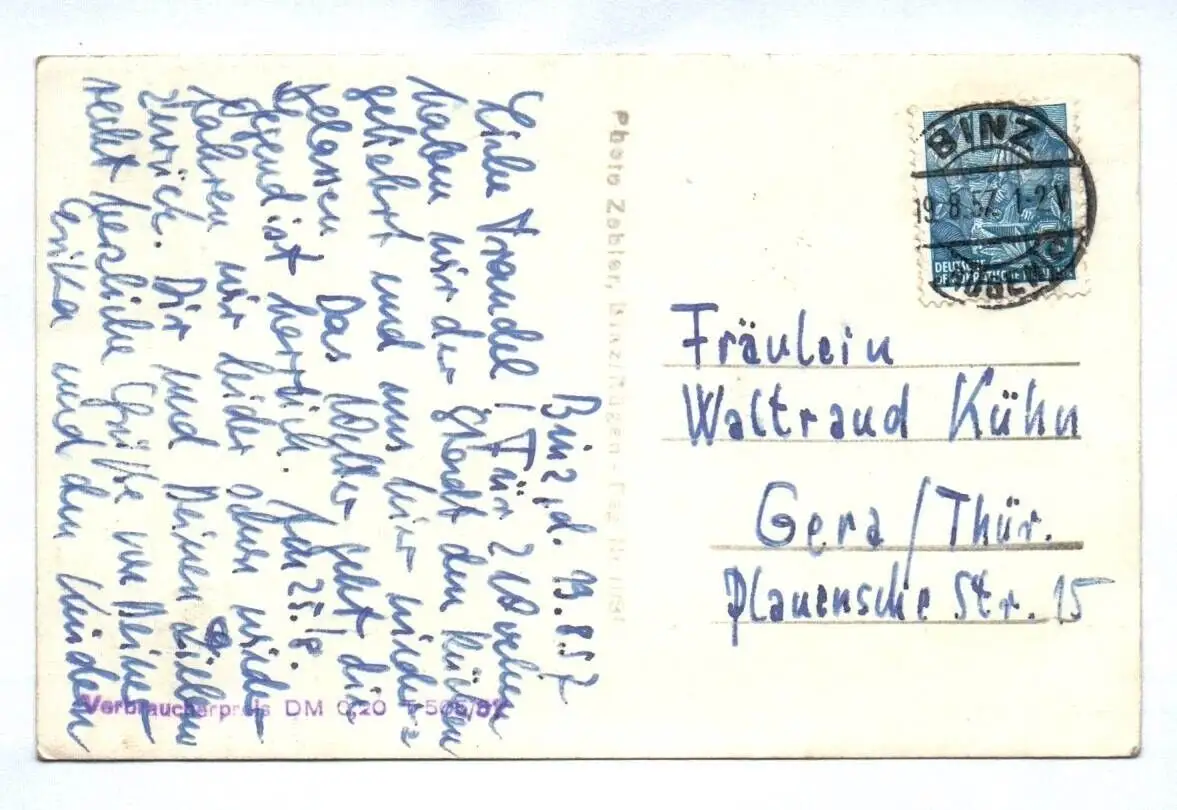 Binz, d. 19.8.57
Liebe Traudel! Für 2 Wochen
haben wir der Stadt den Rücken
gekehrt und uns hier nieder=
gelassen. Das Wetter geht, die
Gegend ist herrlich. Am 25.8.
fahren wir leider schon wieder
zurück. Dir und Deinen Lieben
recht herzliche Grüße von Deiner
Erika und den Kindern
Verbraucherpreis DM 0,20
Photo Zobler, Binz/Rügen
BINZ
19.8.57 1-2 V
(RÜGEN)
DEUTSCHE
DEMOKRATISCHE
Fräulein
Waltraud Kühn
Gera/Thür.
Plauensche Str. 15